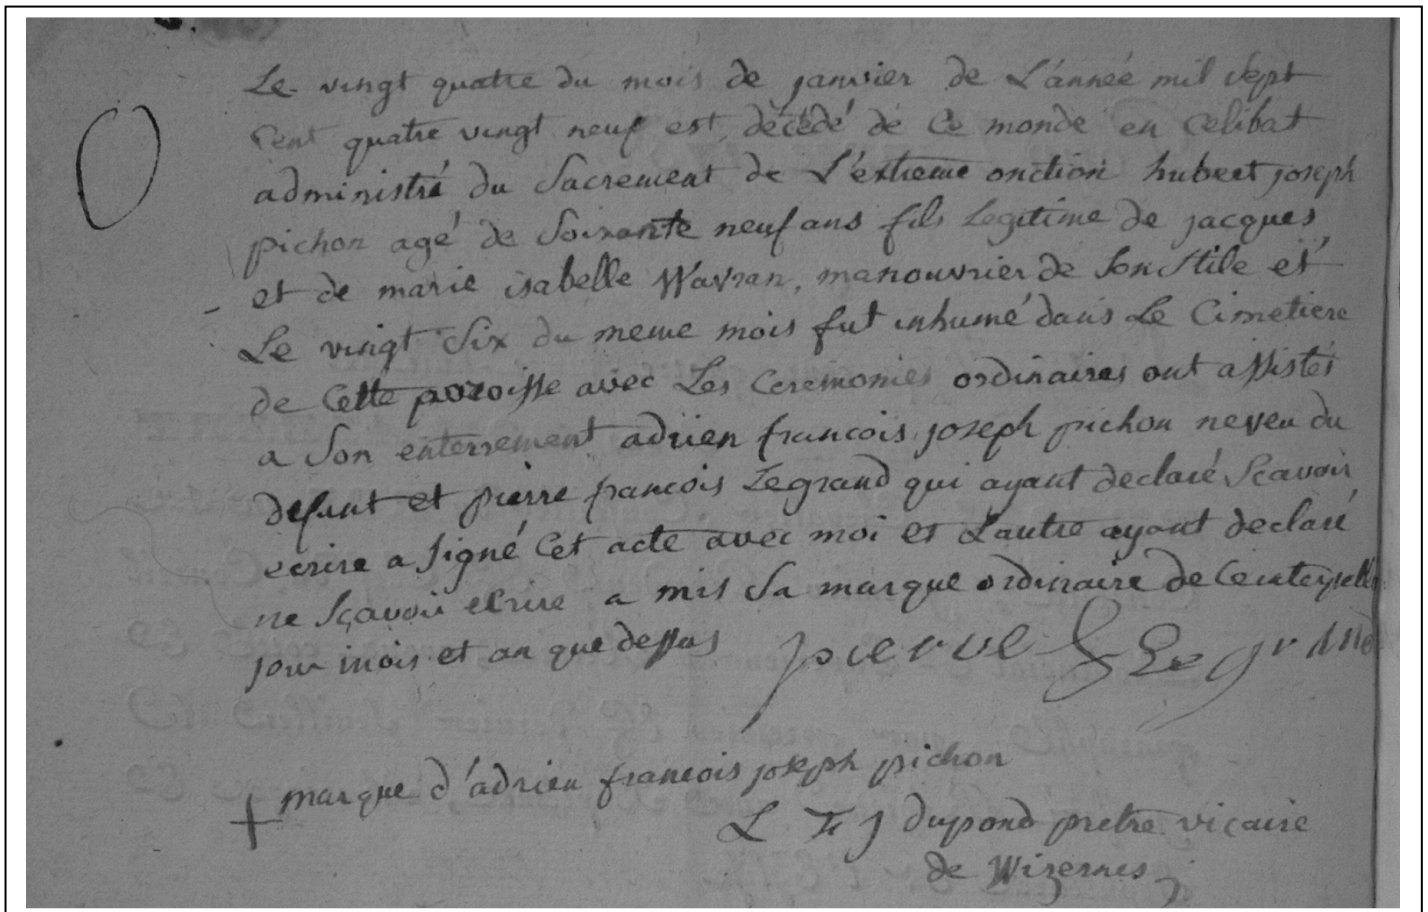 Le vingt quatre du mois de janvier de L'année mil sept
Cent quatre vingt neuf est décédé de Ce monde en Celibat
administré du Sacrement de L'extreme onction hubert joseph
pichon agé de Soixante neuf ans fils Legitime de jacques
et de marie isabelle Wavran, manouvrier de Son Stile et
Le vingt Six du meme mois fut inhumé dans Le Cimetiere
de Cette paroisse avec Les Ceremonies ordinaires ont assistés
a Son enterrement adrien francois joseph pichon neveu du
defunt et pierre francois Legrand qui ayant declaré Scavoir
ecrire a Signé Cet acte avec moi et L'autre ayant declaré
ne Sçavoir ecrire a mis Sa marque ordinaire de
jour mois et an que dessus pierre Legrand
marque d'adrien francois joseph pichon
L F J dupond pretre vicaire
de Wizernes